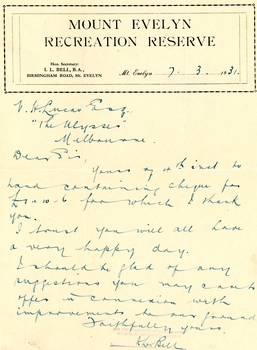 MOUNT EVELYN
RECREATION RESERVE
Hon. Secretary:
I. L. BELL, B.A.,
BIRMINGHAM ROAD, Mt. EVELYN
Mt. Evelyn 7. 3. 1931.
Lucas Esq.,
"The Ulysses"
Melbourne.
Dear Sir,
Yours of 4th inst to
hand containing cheque for
10-6 for which I thank
you.
I trust you will all have
a very happy day.
I should be glad of any
suggestions you may care to
offer in connexion with
improvements to our ground
Faithfully yours.
Bell